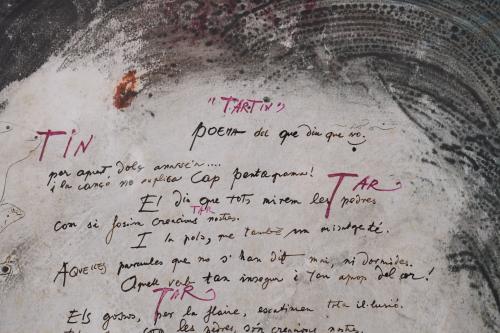 "TARTIN"
POEMA del que diu que no.
TIN
per aquet dolç
i la cançó no suplica cap pentagrama!
TAR
El dia que tots mirem les pedres
TAR
com si fossin creacions nostres.
I la pols, me també un missatgé.
AQUELLES paraules que no s'han dit mai, ni dormides.
Aquell vent tan insegur i tan aprop del cor!
TAR
Els gossos, per la flaire, escatimen tota il·lusió.
com les pedres, són creacions nostres.